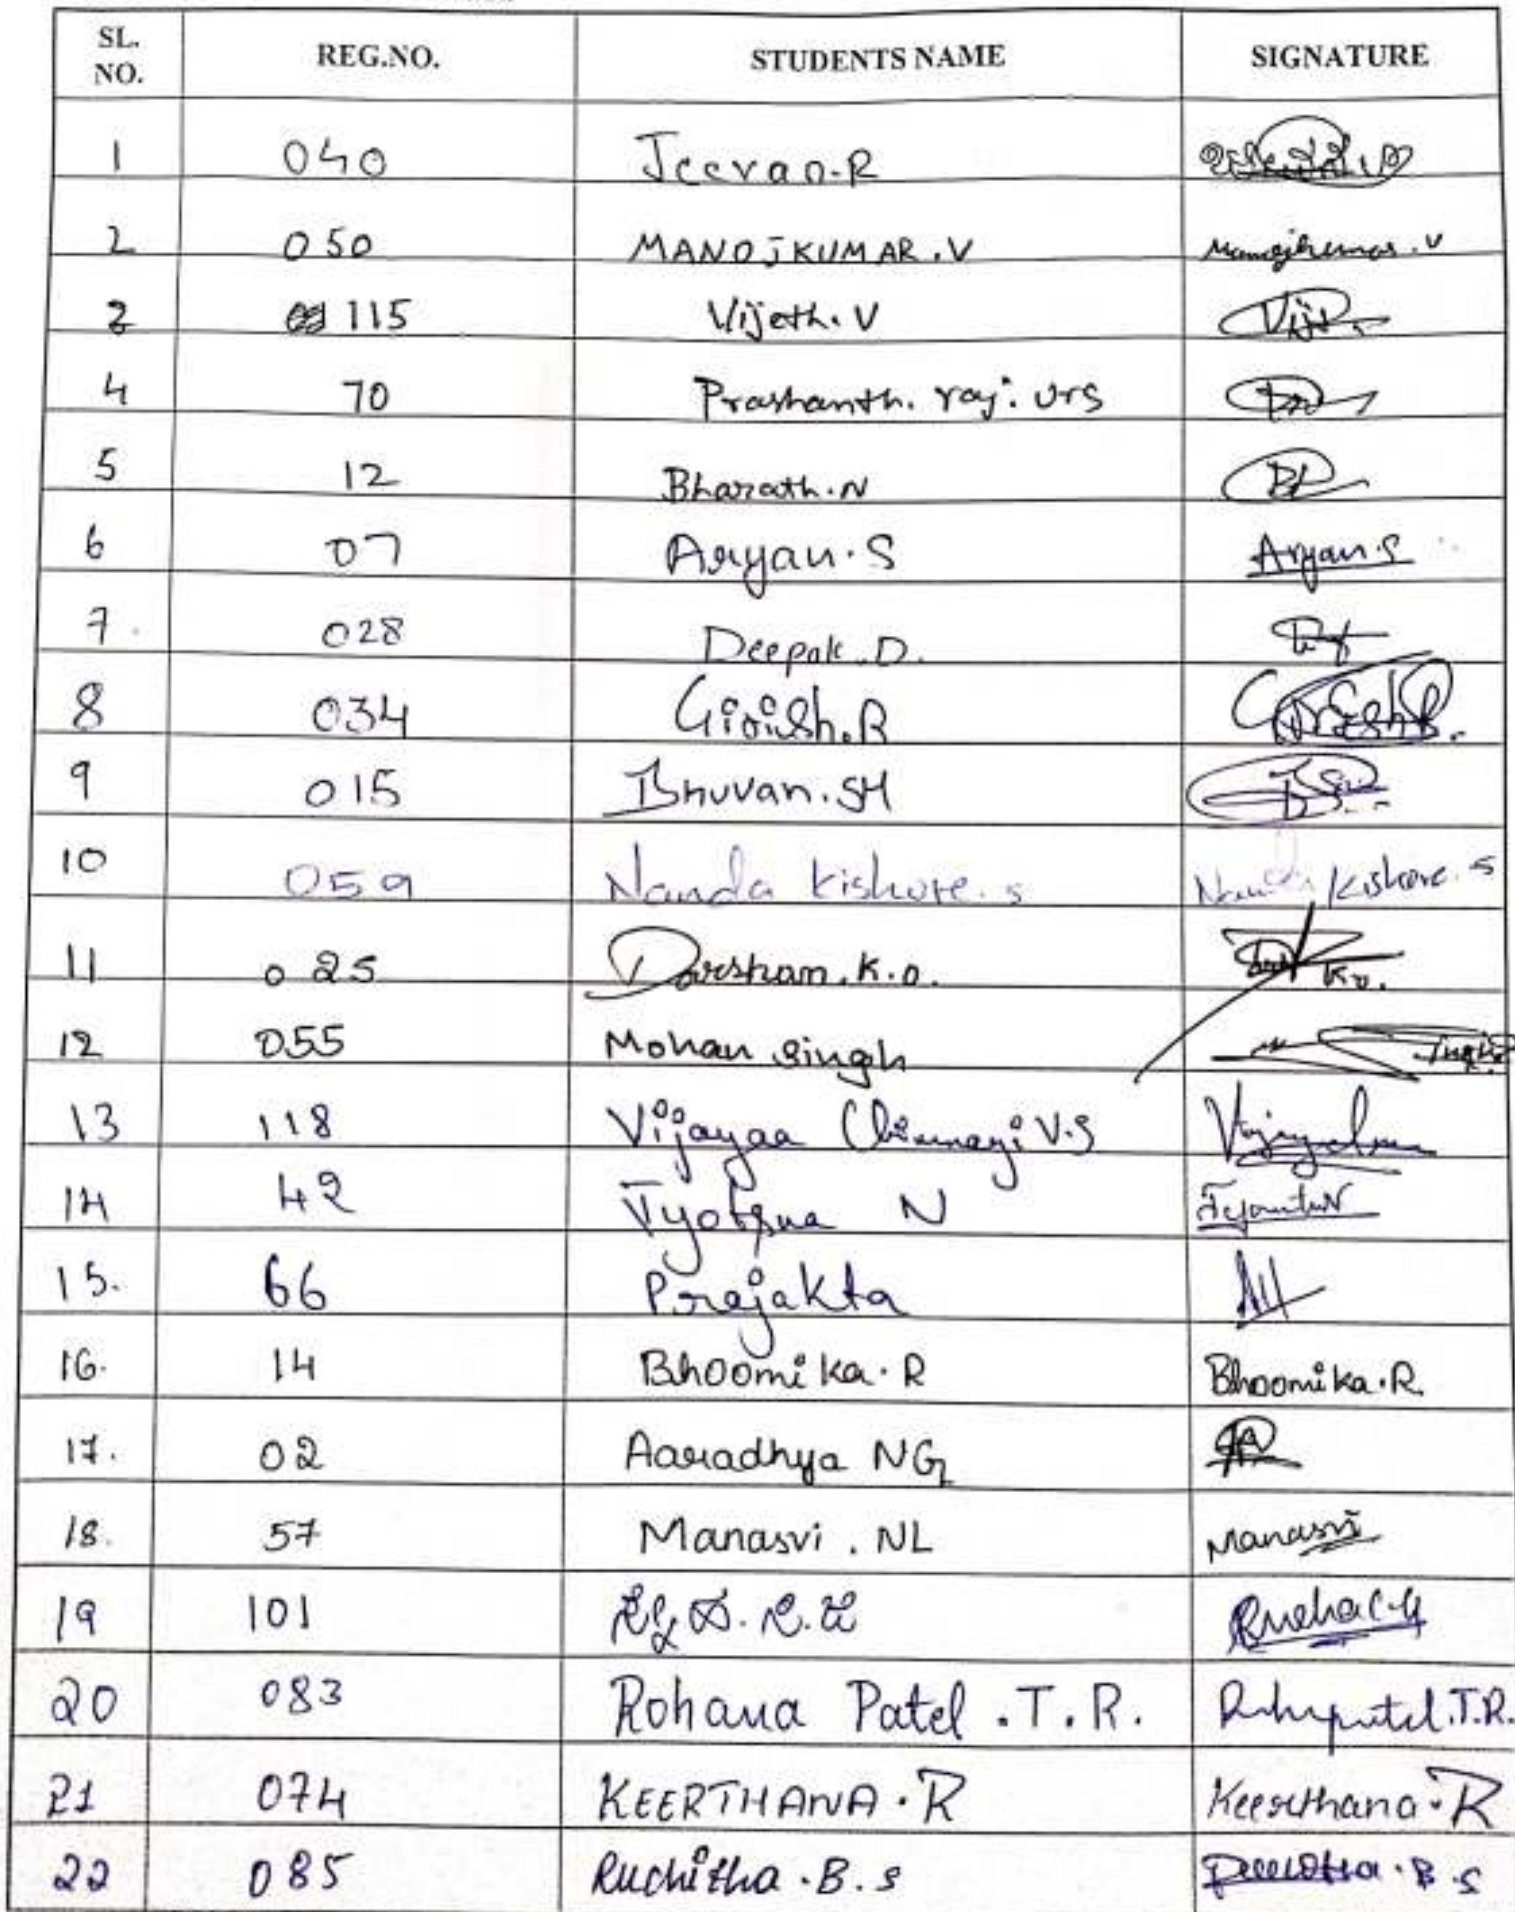 SL. NO. REG.NO. STUDENTS NAME SIGNATURE
1 040 Jeevan.R
2 050 MANOJKUMAR.V Manojkumar.V
3 115 Vijeth.V
4 70 Prashanth. raj. urs
5 12 Bharath.N
6 07 Aryan.S Aryan.S
7. 028 Deepak.D.
8 034 Girish.R
9 015 Bhuvan.SH
10 059 Nanda kishore.s Nanda Kishore.s
11 025 Darshan.K.O.
12 055 Mohan singh
13 118 Vijayaa Chinmayi V.S
14 42 Jyotsna N
15. 66 Prajakta
16. 14 Bhoomika.R Bhoomika.R
17. 02 Aaradhya NG
18. 57 Manasvi . NL Manasvi
19 101
20 083 Rohana Patel .T.R. .T.R.
21 074 KEERTHANA.R Keerthana.R
22 085 Ruchitha.B.s B.S